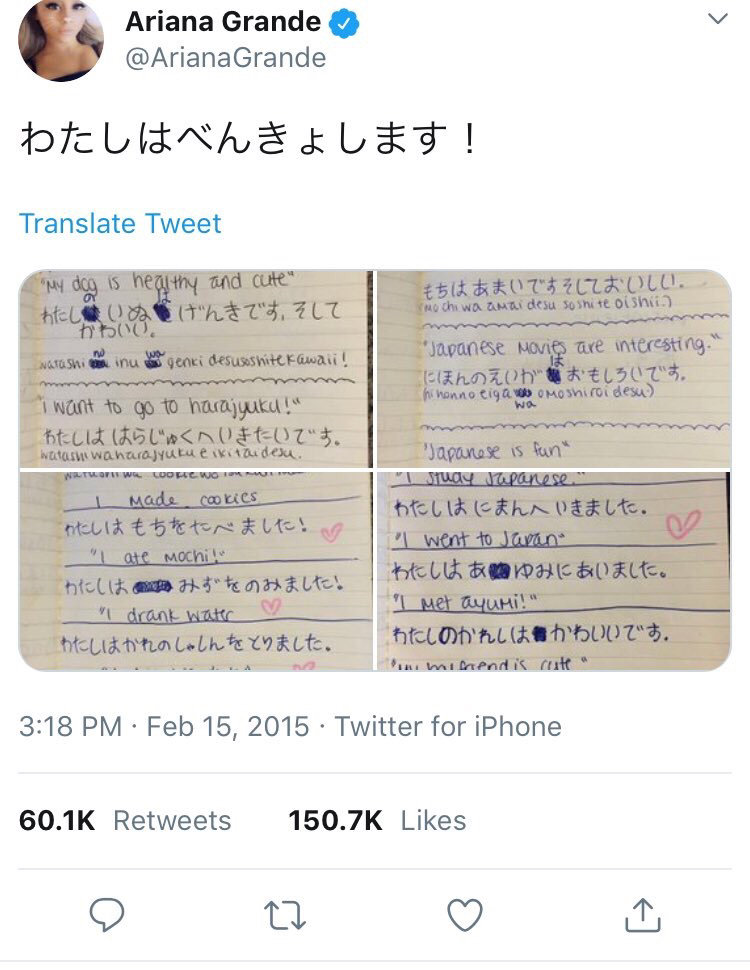 Ariana Grande
@ArianaGrande
わたしはべんきょします！
Translate Tweet
"My dog is healthy and cute"
の は
わたし いぬ げんきです, そして
かわいい.
no wa
watashi inu genki desusoshitekawaii!
"I want to go to harajyuku!"
わたしははらじゅくへいきたいです。
watashiwaharajyukueikitaidesu.
もちはあまいですそしておいしい.
(mochi wa amai desu soshite oishii.)
"Japanese Movies are interesting."
は
にほんのえいが おもしろいです。
(hinonno eiga omoshiroi desu)
wa
"Japanese is fun"
I made cookies
わたしはもちをたべました!
"I ate mochi!"
わたしは みずをのみました!
"I drank water
わたしはかれのしゃしんをとりました.
"I study Japanese."
わたしはにまんへいきました.
"I went to Japan"
わたしはあ ゆみにあいました。
"I met ayumi!"
わたしのかれしは かわいいです.
cute"
3:18 PM · Feb 15, 2015 · Twitter for iPhone
60.1K Retweets 150.7K Likes